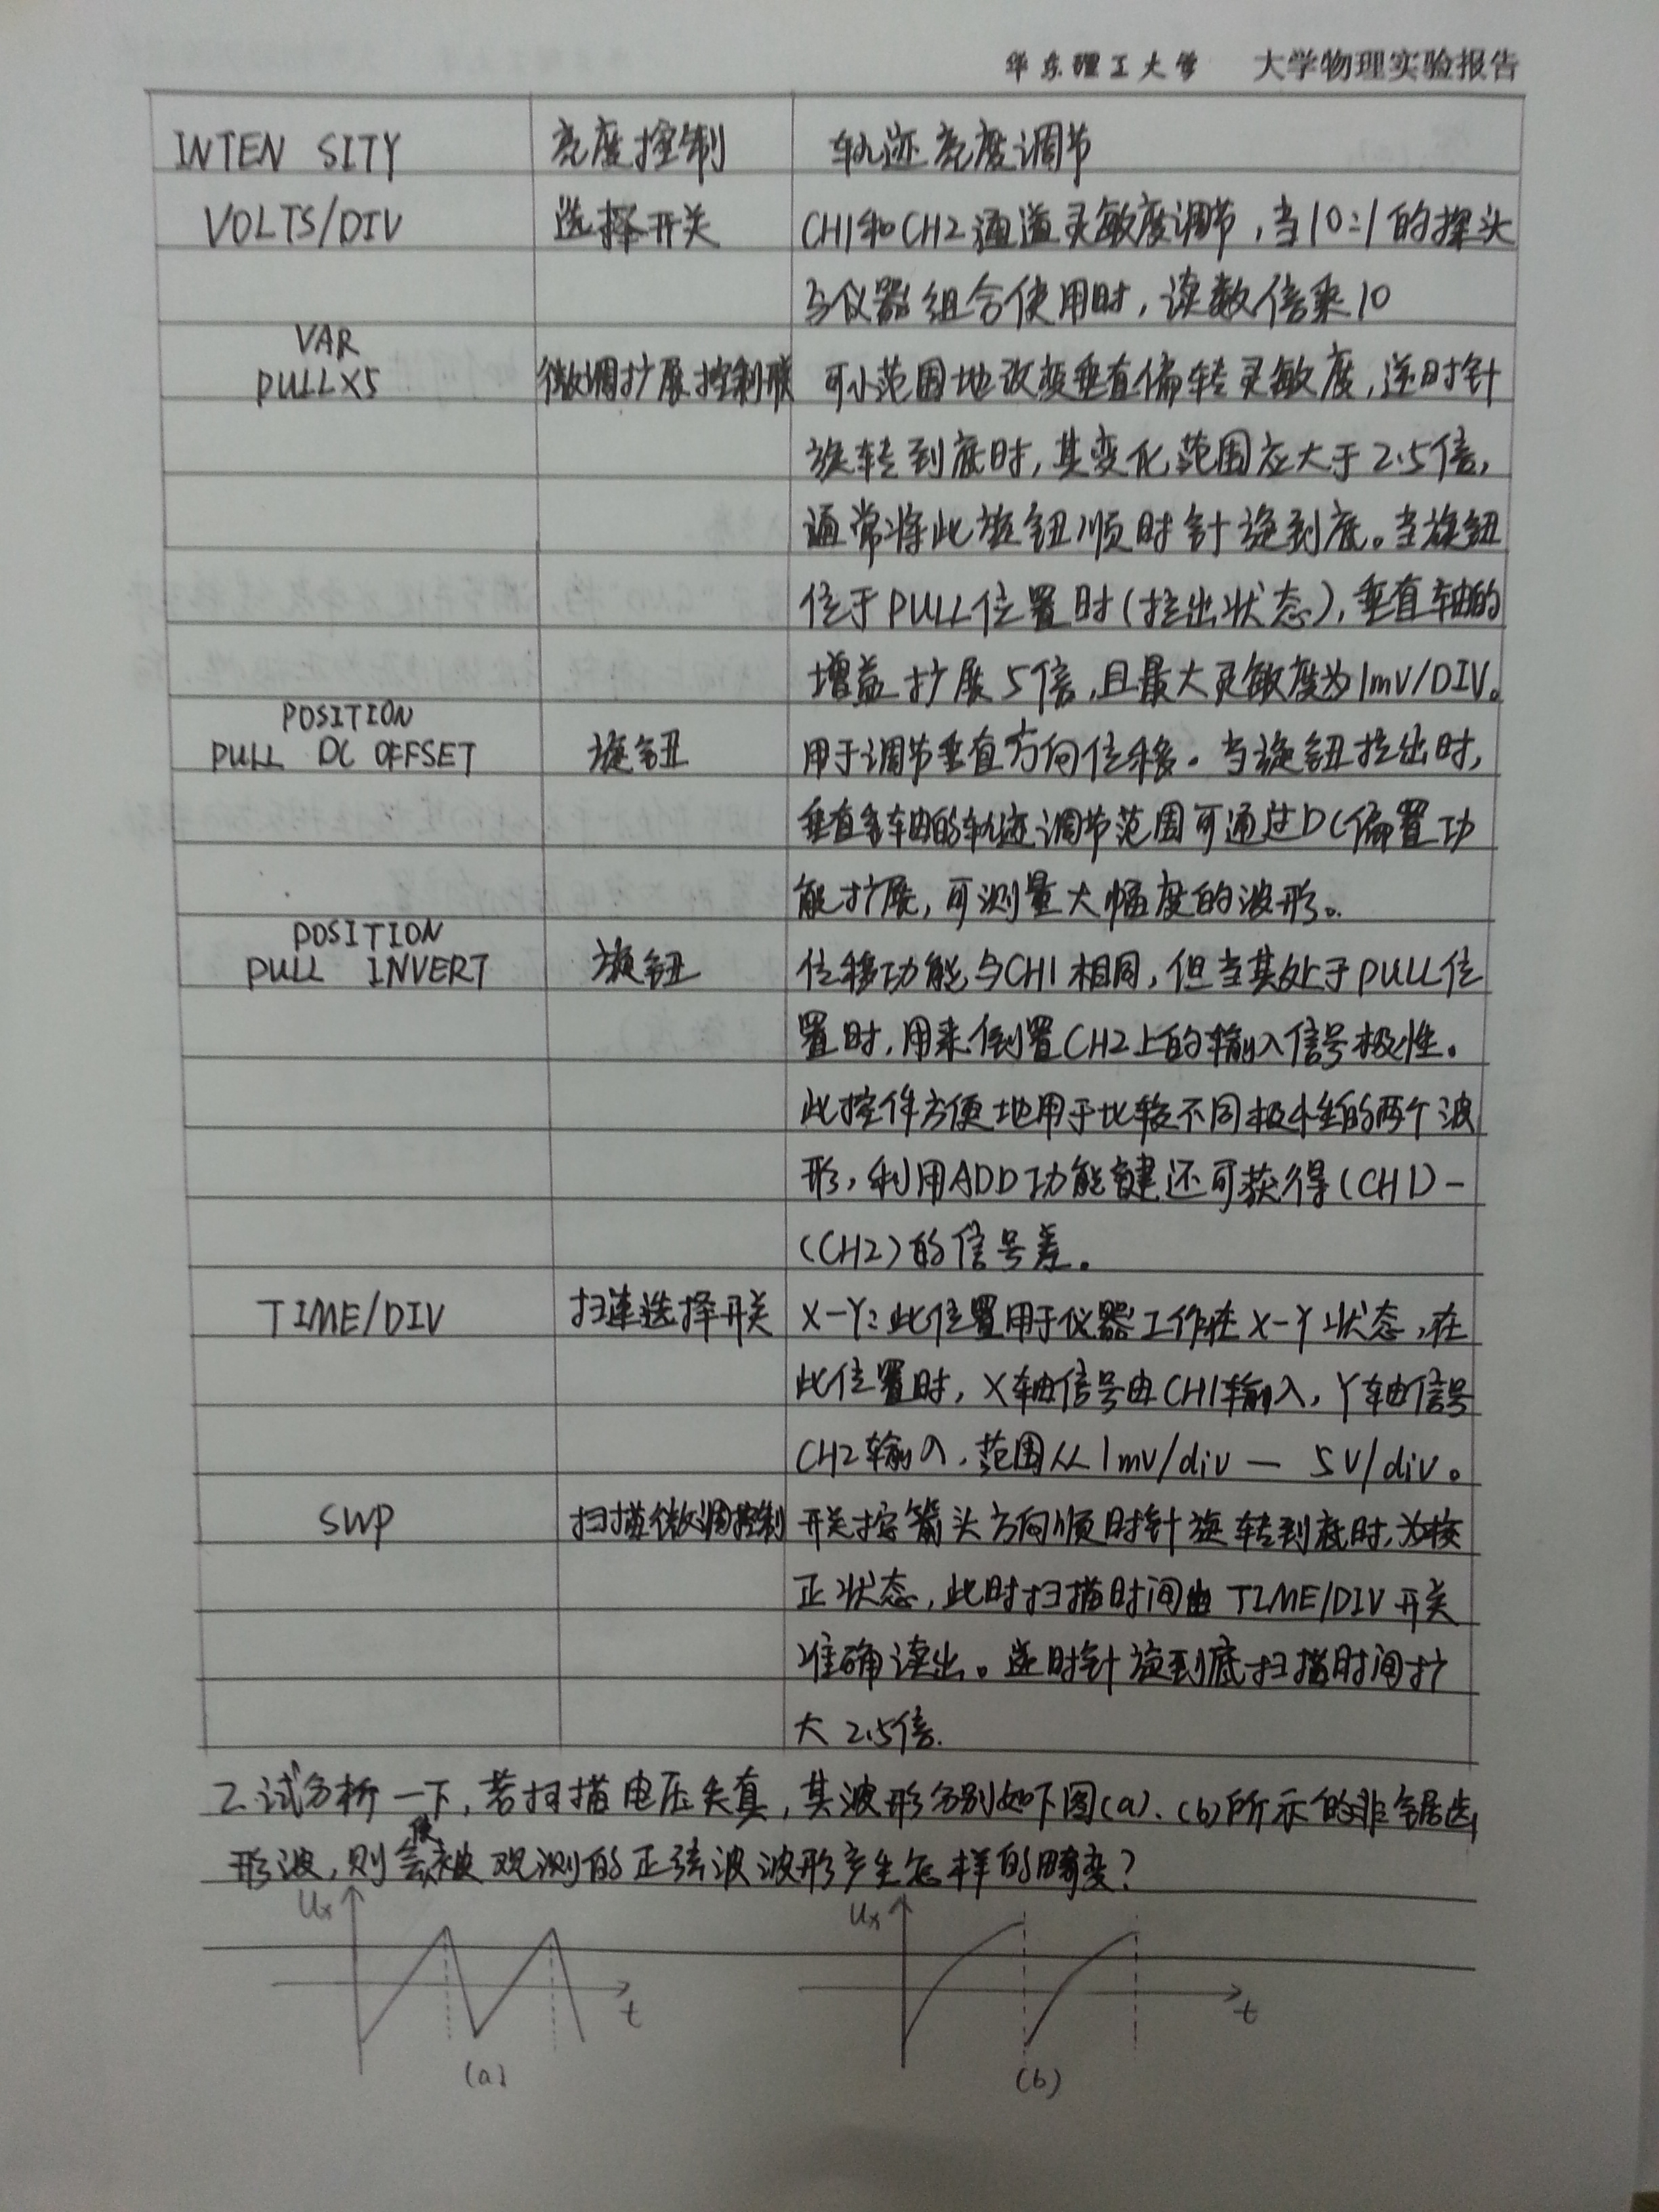 华东理工大学 大学物理实验报告
INTEN SITY 亮度控制 轨迹亮度调节
VOLTS/DIV 选择开关 CH1和CH2通道灵敏度调节,当10:1的探头
与仪器组合使用时,读数倍乘10
VAR
PULL×5 微调扩展控制联 可小范围地改变垂直偏转灵敏度,逆时针
旋转到底时,其变化范围应大于2.5倍,
通常将此旋钮顺时针旋到底。当旋钮
位于PULL位置时(拉出状态),垂直轴的
增益扩展5倍,且最大灵敏度为1mV/DIV。
POSITION
PULL DC OFFSET 旋钮 用于调节垂直方向位移。当旋钮拉出时,
垂直轴的轨迹调节范围可通过DC偏置功
能扩展,可测量大幅度的波形。
POSITION
PULL INVERT 旋钮 位移功能与CH1相同,但当其处于PULL位
置时,用来倒置CH2上的输入信号极性。
此控件方便地用于比较不同极性的两个波
形,利用ADD功能键还可获得(CH1)-
(CH2)的信号差。
TIME/DIV 扫速选择开关 X-Y:此位置用于仪器工作在X-Y状态,在
此位置时,X轴信号由CH1输入,Y轴信号
CH2输入,范围从1mv/div — 5V/div。
SWP 扫描微调控制 开关按箭头方向顺时针旋转到底时,为校
正状态,此时扫描时间由TIME/DIV开关
准确读出。逆时针旋到底扫描时间扩
大2.5倍.
2.试分析一下,若扫描电压失真,其波形分别如下图(a)、(b)所示的非锯齿
形波,则会使被观测的正弦波波形产生怎样的畸变?
Ux t (a) Ux t (b)